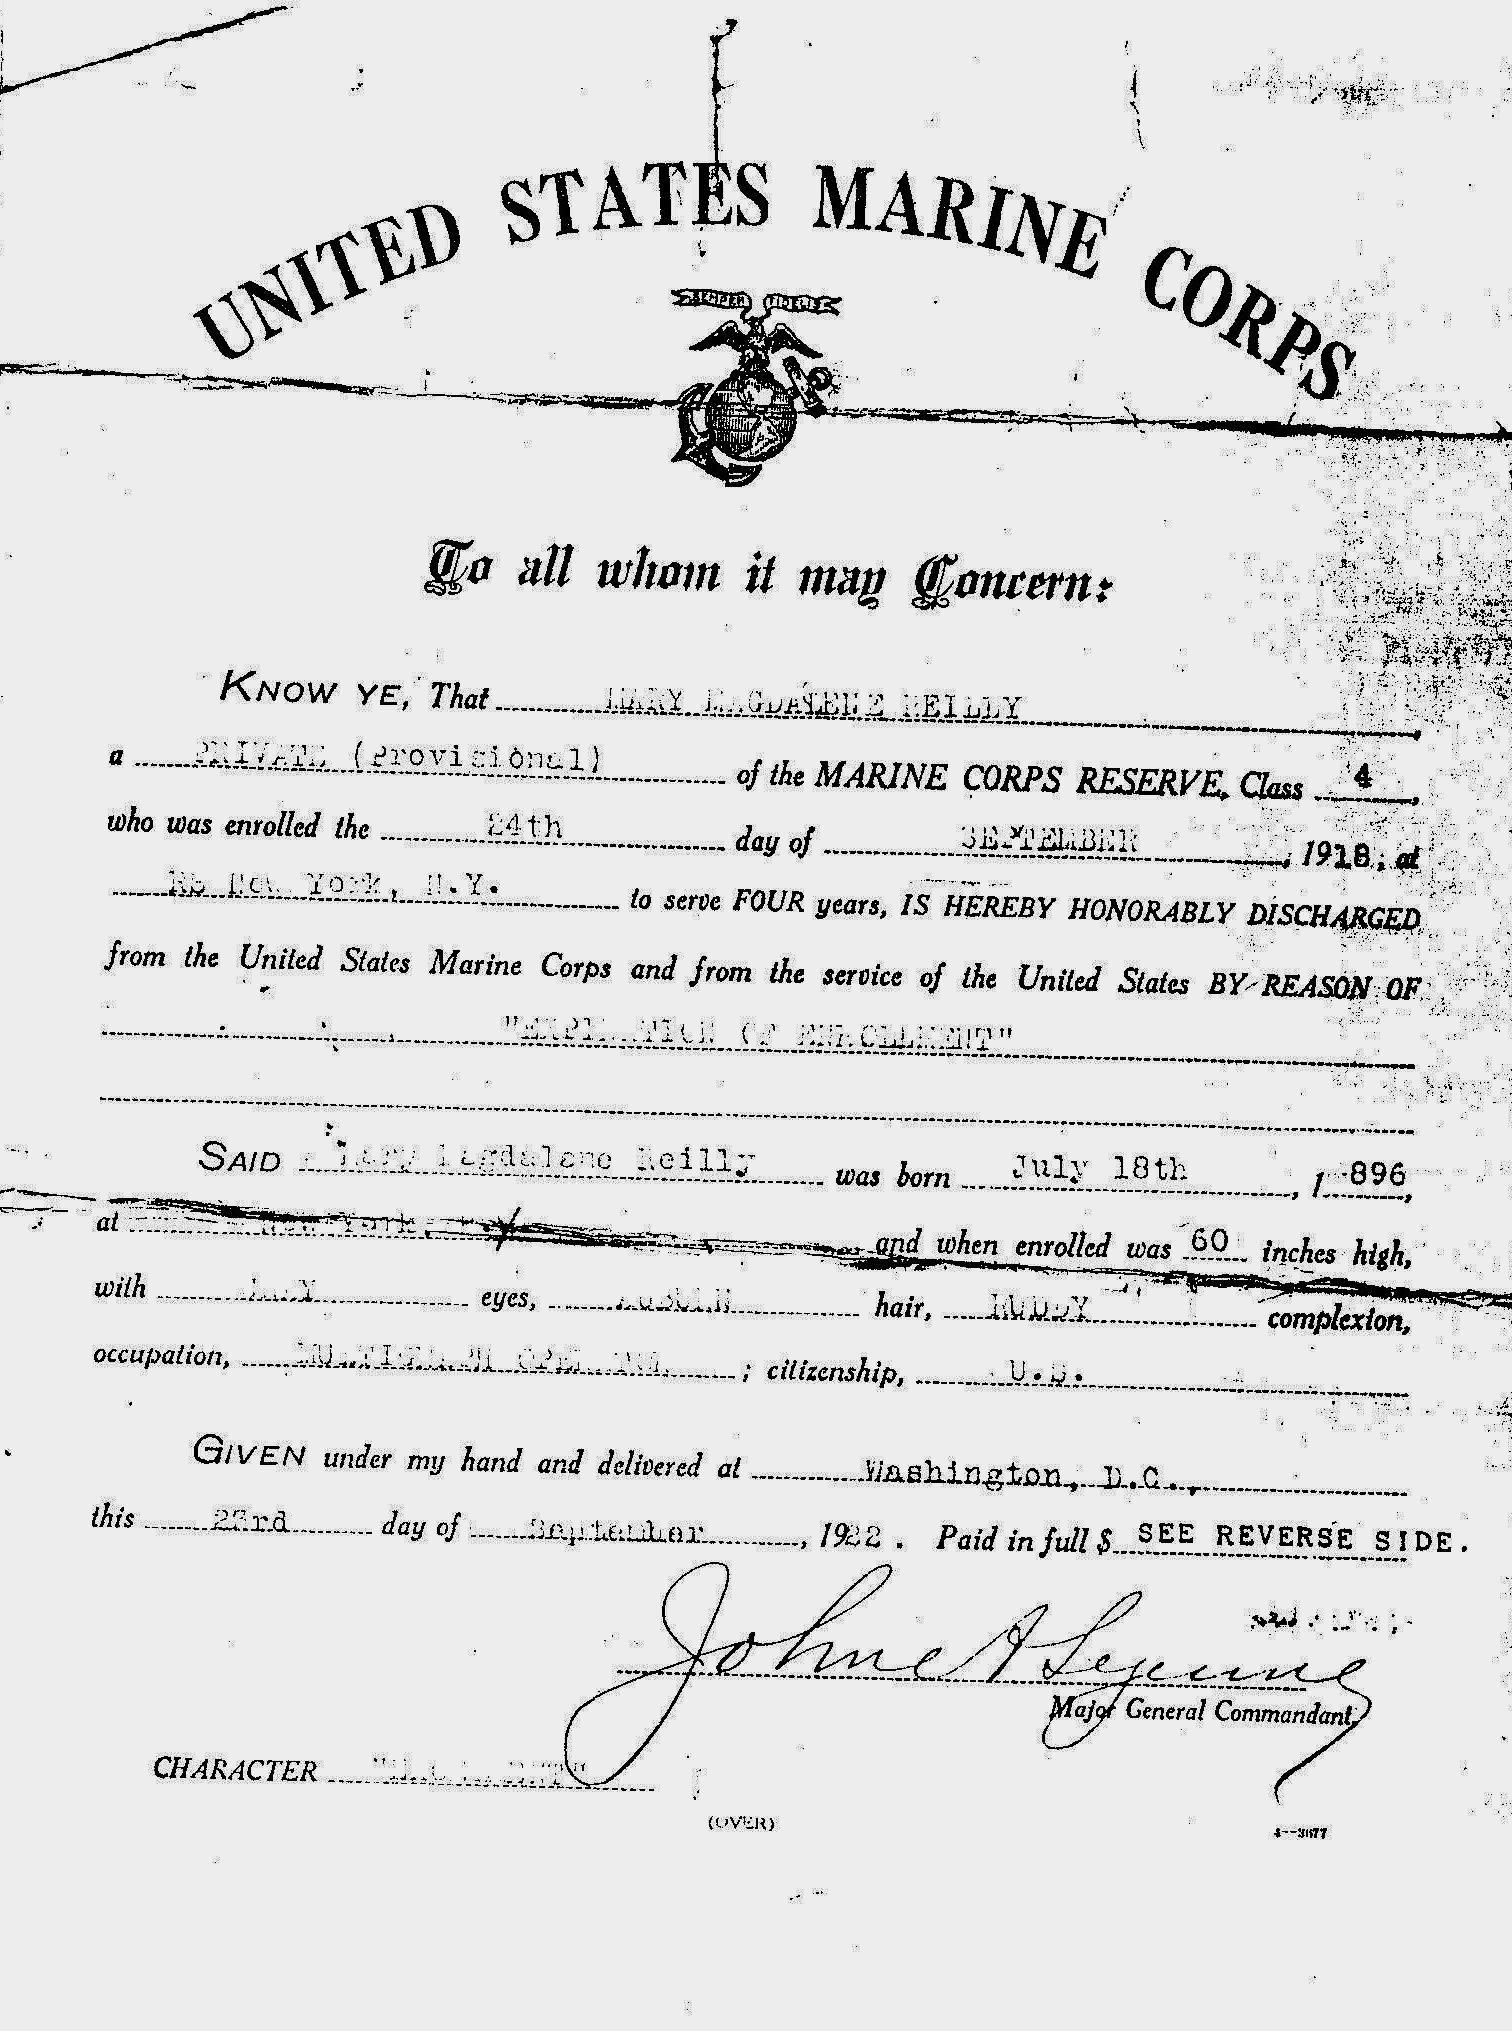 UNITED STATES MARINE CORPS
SEMPER FIDELIS
To all whom it may Concern:
KNOW YE, That MARY MAGDALENE REILLY,
a PRIVATE (Provisional) of the MARINE CORPS RESERVE, Class 4,
who was enrolled the 24th day of SEPTEMBER, 1918, at
New York, N.Y. to serve FOUR years, IS HEREBY HONORABLY DISCHARGED
from the United States Marine Corps and from the service of the United States BY REASON OF
"EXPIRATION OF ENROLLMENT"
SAID Mary Magdalene Reilly was born July 18th, 1896,
at New York, N.Y. and when enrolled was 60 inches high,
with eyes, AUBURN hair, RUDDY complexion,
occupation, MULTIGRAPH OPERATOR ; citizenship, U.S.
GIVEN under my hand and delivered at Washington, D.C.,
this 23rd day of September, 1922. Paid in full $ SEE REVERSE SIDE.
John A Lejeune
Major General Commandant.
CHARACTER "EXCELLENT"
(OVER)
4--3677